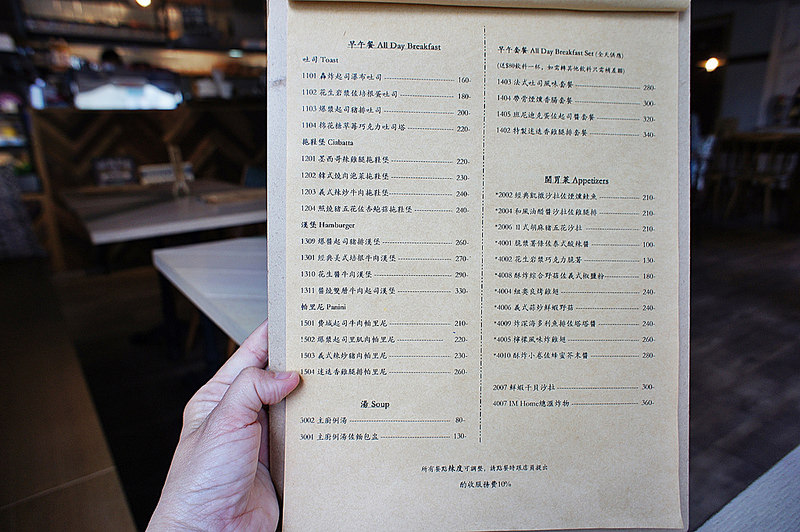 早午餐 All Day Breakfast
吐司 Toast
1101 轟炸起司瀑布吐司 160-
1102 花生岩漿佐培根蛋吐司 180-
1103 爆漿起司豬排吐司 200-
1104 棉花糖草莓巧克力吐司塔 220-
拖鞋堡 Ciabatta
1201 墨西哥辣雞腿拖鞋堡 220-
1202 韓式燒肉泡菜拖鞋堡 230-
1203 義式辣炒牛肉拖鞋堡 240-
1204 照燒豬五花佐杏鮑菇拖鞋堡 240-
漢堡 Hamburger
1309 爆醬起司豬排漢堡 260-
1301 經典美式培根牛肉漢堡 270-
1310 花生醬牛肉漢堡 290-
1311 醬燒雙層牛肉起司漢堡 330-
帕里尼 Panini
1501 費城起司牛肉帕里尼 210-
1502 爆漿起司里肌肉帕里尼 220-
1503 義式辣炒豬肉帕里尼 230-
1504 迷迭香雞腿排帕里尼 260-
湯 Soup
3002 主廚例湯 80-
3001 主廚例湯佐麵包盅 130-
早午套餐 All Day Breakfast Set (全天供應)
(送$80飲料一杯，如需轉其他飲料只需補差額)
1403 法式吐司風味套餐 280-
1404 帶骨煙燻香腸套餐 300-
1405 班尼迪克蛋佐起司醬套餐 320-
1402 特製迷迭香雞腿排套餐 340-
開胃菜 Appetizers
*2002 經典凱撒沙拉佐煙燻鮭魚 210-
*2004 和風油醋醬沙拉佐雞腿排 210-
*2006 日式胡麻豬五花沙拉 210-
*4001 脆漿薯條佐泰式酸辣醬 100-
*4002 花生岩漿巧克力脆薯 130-
*4008 酥炸綜合野菇佐義式椒鹽粉 180-
*4004 紐奧良烤雞翅 240-
*4006 義式蒜炒鮮蝦野菇 240-
*4009 炸深海多利魚排佐塔塔醬 240-
*4005 檸檬風味炸雞翅 260-
*4010 酥炸小卷佐蜂蜜芥末醬 280-
2007 鮮蝦干貝沙拉 300-
4007 IM Home總滙炸物 360-
所有餐點辣度可調整，請點餐時跟店員提出
酌收服務費10%